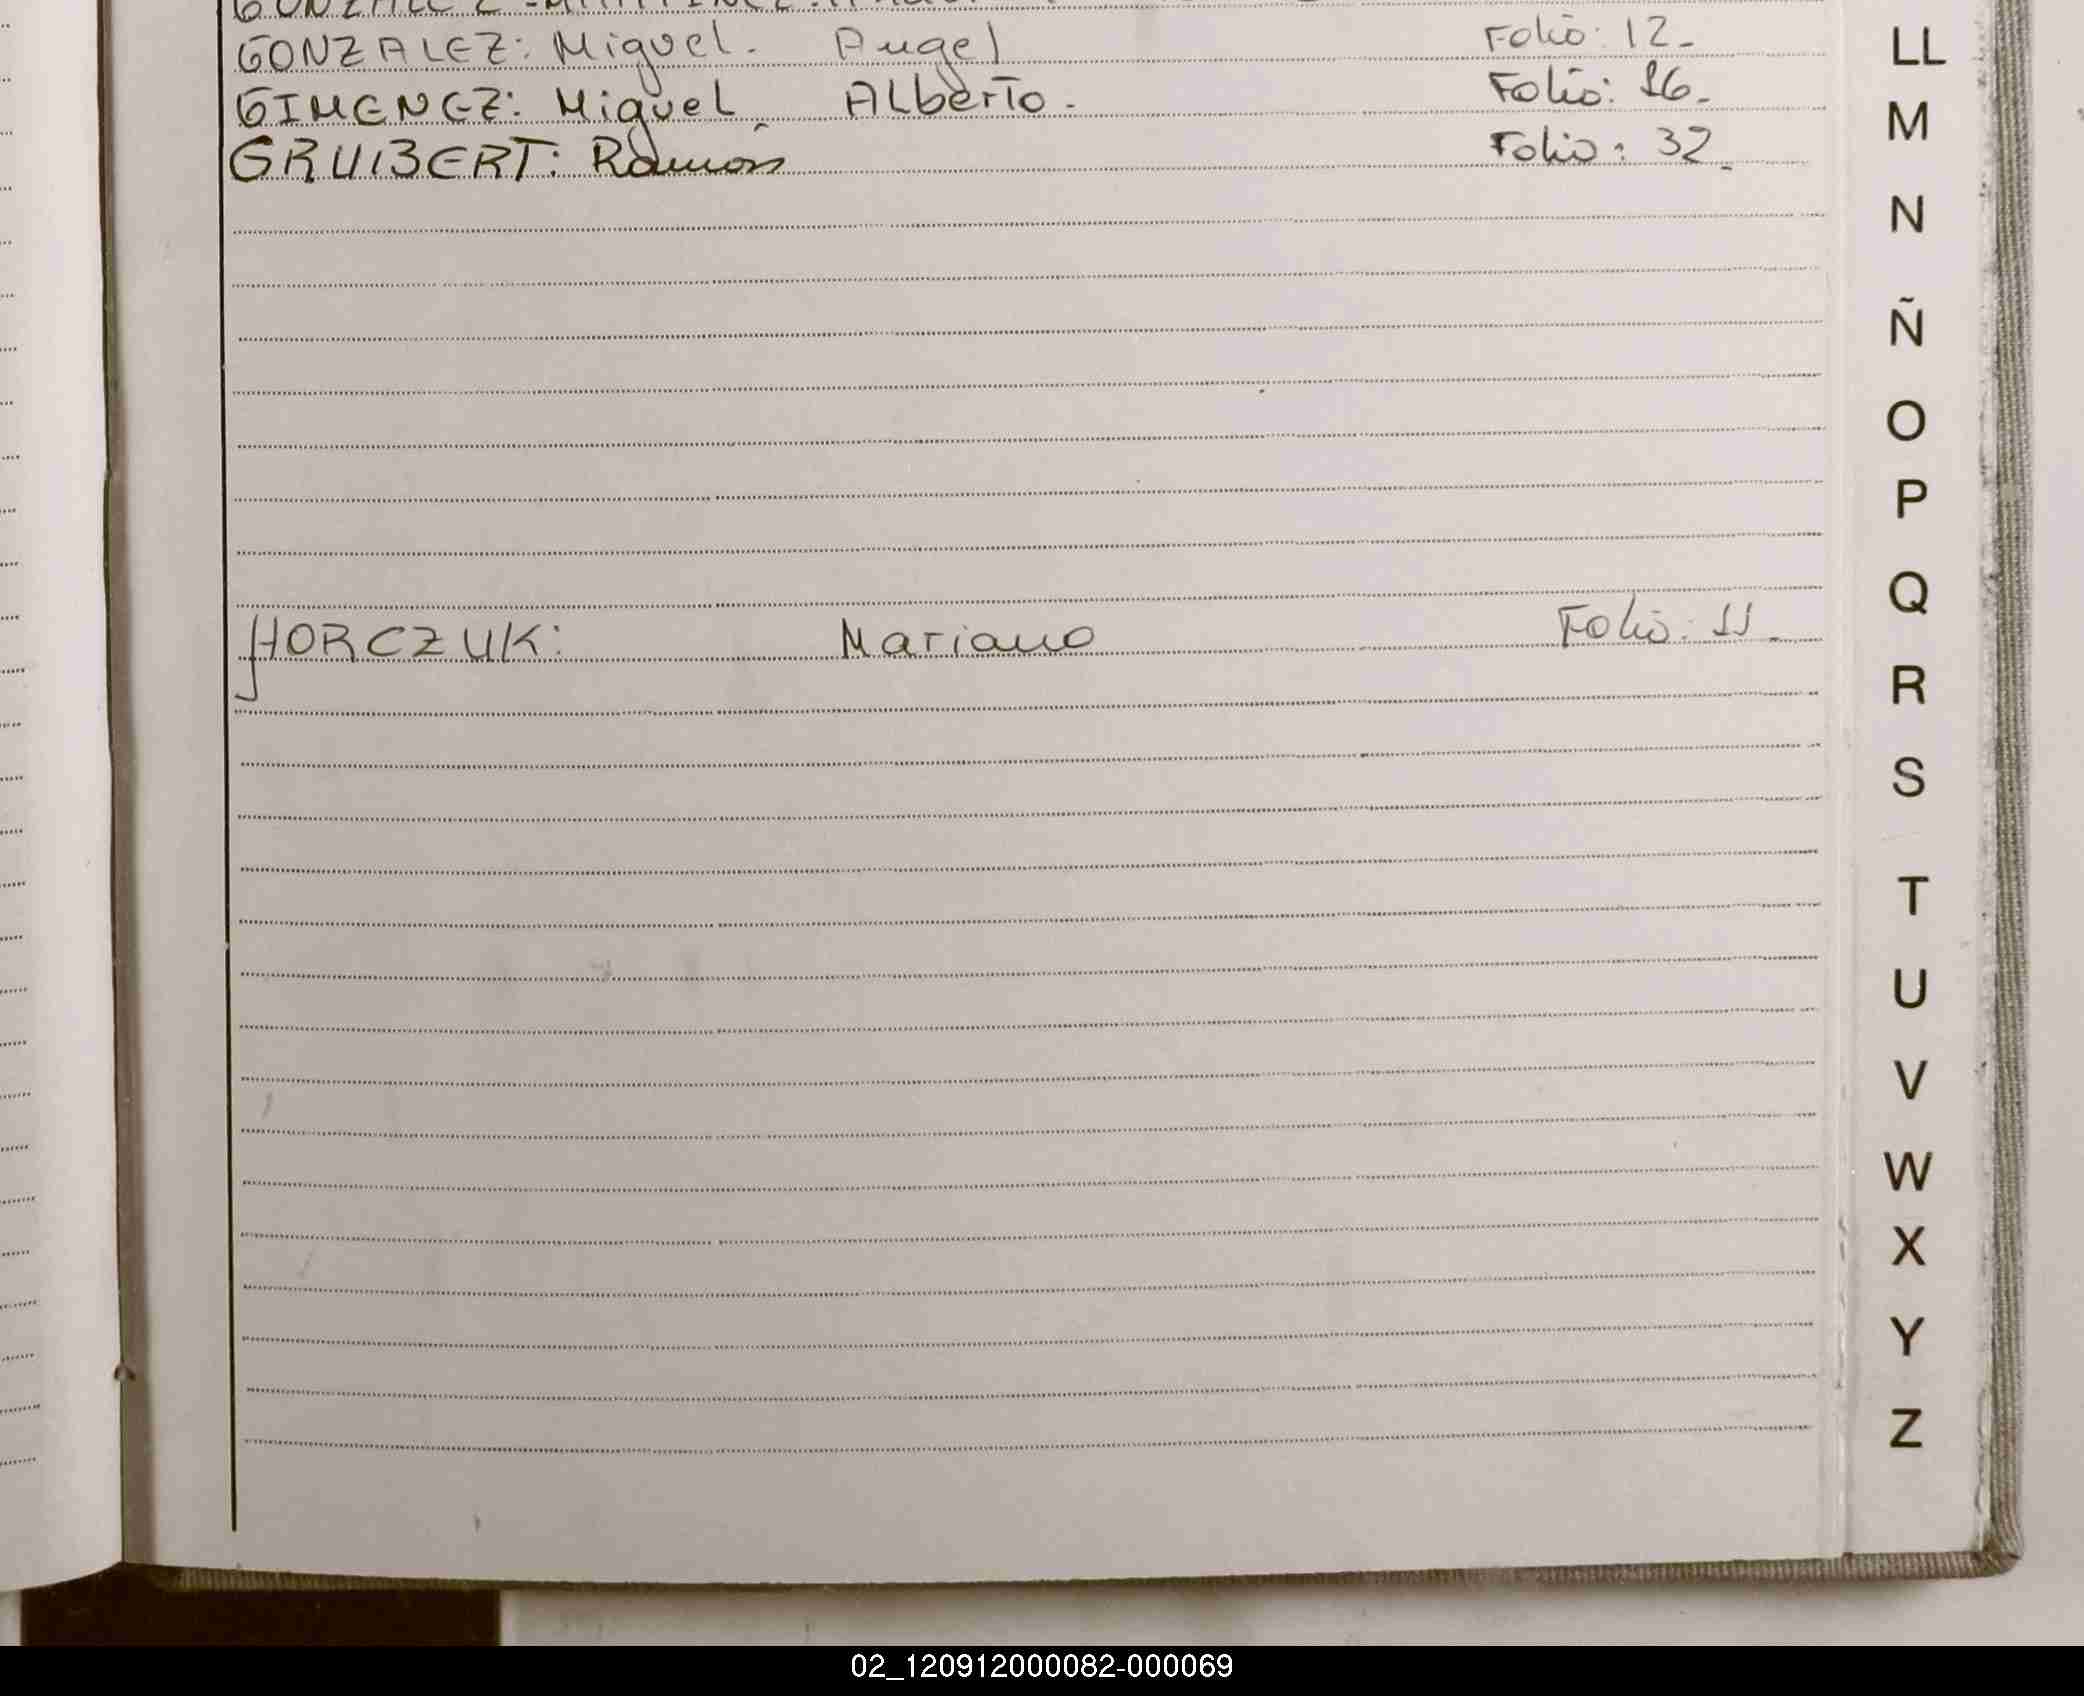 GONZALEZ: Miguel. Angel Folio: 12.
GIMENEZ: Miguel Alberto. Folio: 16.
GRUIBERT: Ramón Folio: 32.
HORCZUK: Mariano Folio: 11.
LL
M
N
Ñ
O
P
Q
R
S
T
U
V
W
X
Y
Z
02_120912000082-000069